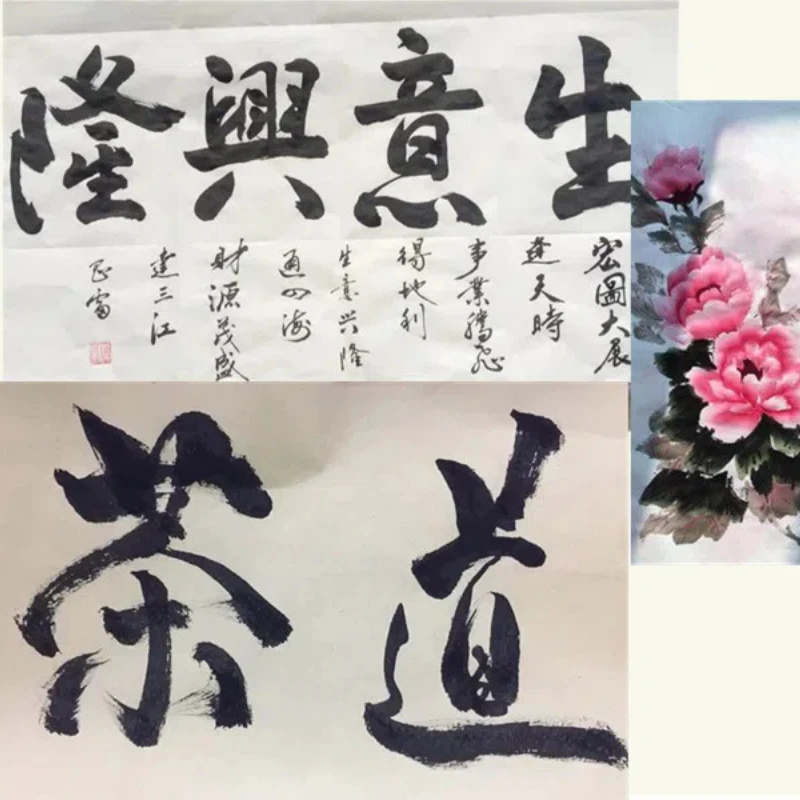 生意興隆
宏圖大展
逢天時
事業騰飛
得地利
生意兴隆
通四海
財源茂盛
達三江
茶道